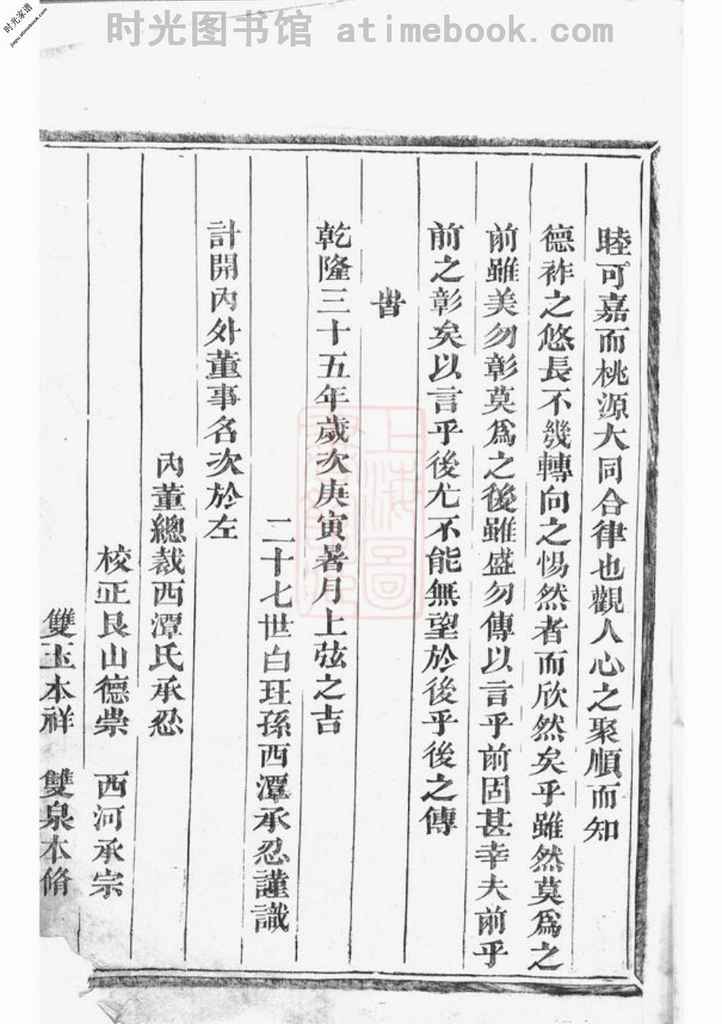 时光图书馆 atimebook.com
时光家谱
jiapu.atimebook.com
睦可嘉而桃源大同合律也觀人心之聚順而知
德祚之悠長不幾轉向之惕然者而欣然矣乎雖然莫爲之
前雖美勿彰莫爲之後雖盛勿傳以言乎前固甚幸夫前乎
前之彰矣以言乎後尤不能無望於後乎後之傳
旹
乾隆三十五年歲次庚寅暑月上弦之吉
二十七世白玨孫西潭承忍謹識
計開內外董事名次於左
內董總裁西潭氏承忍
校正艮山德崇 西河承宗
雙玉本祥 雙泉本脩
上海圖